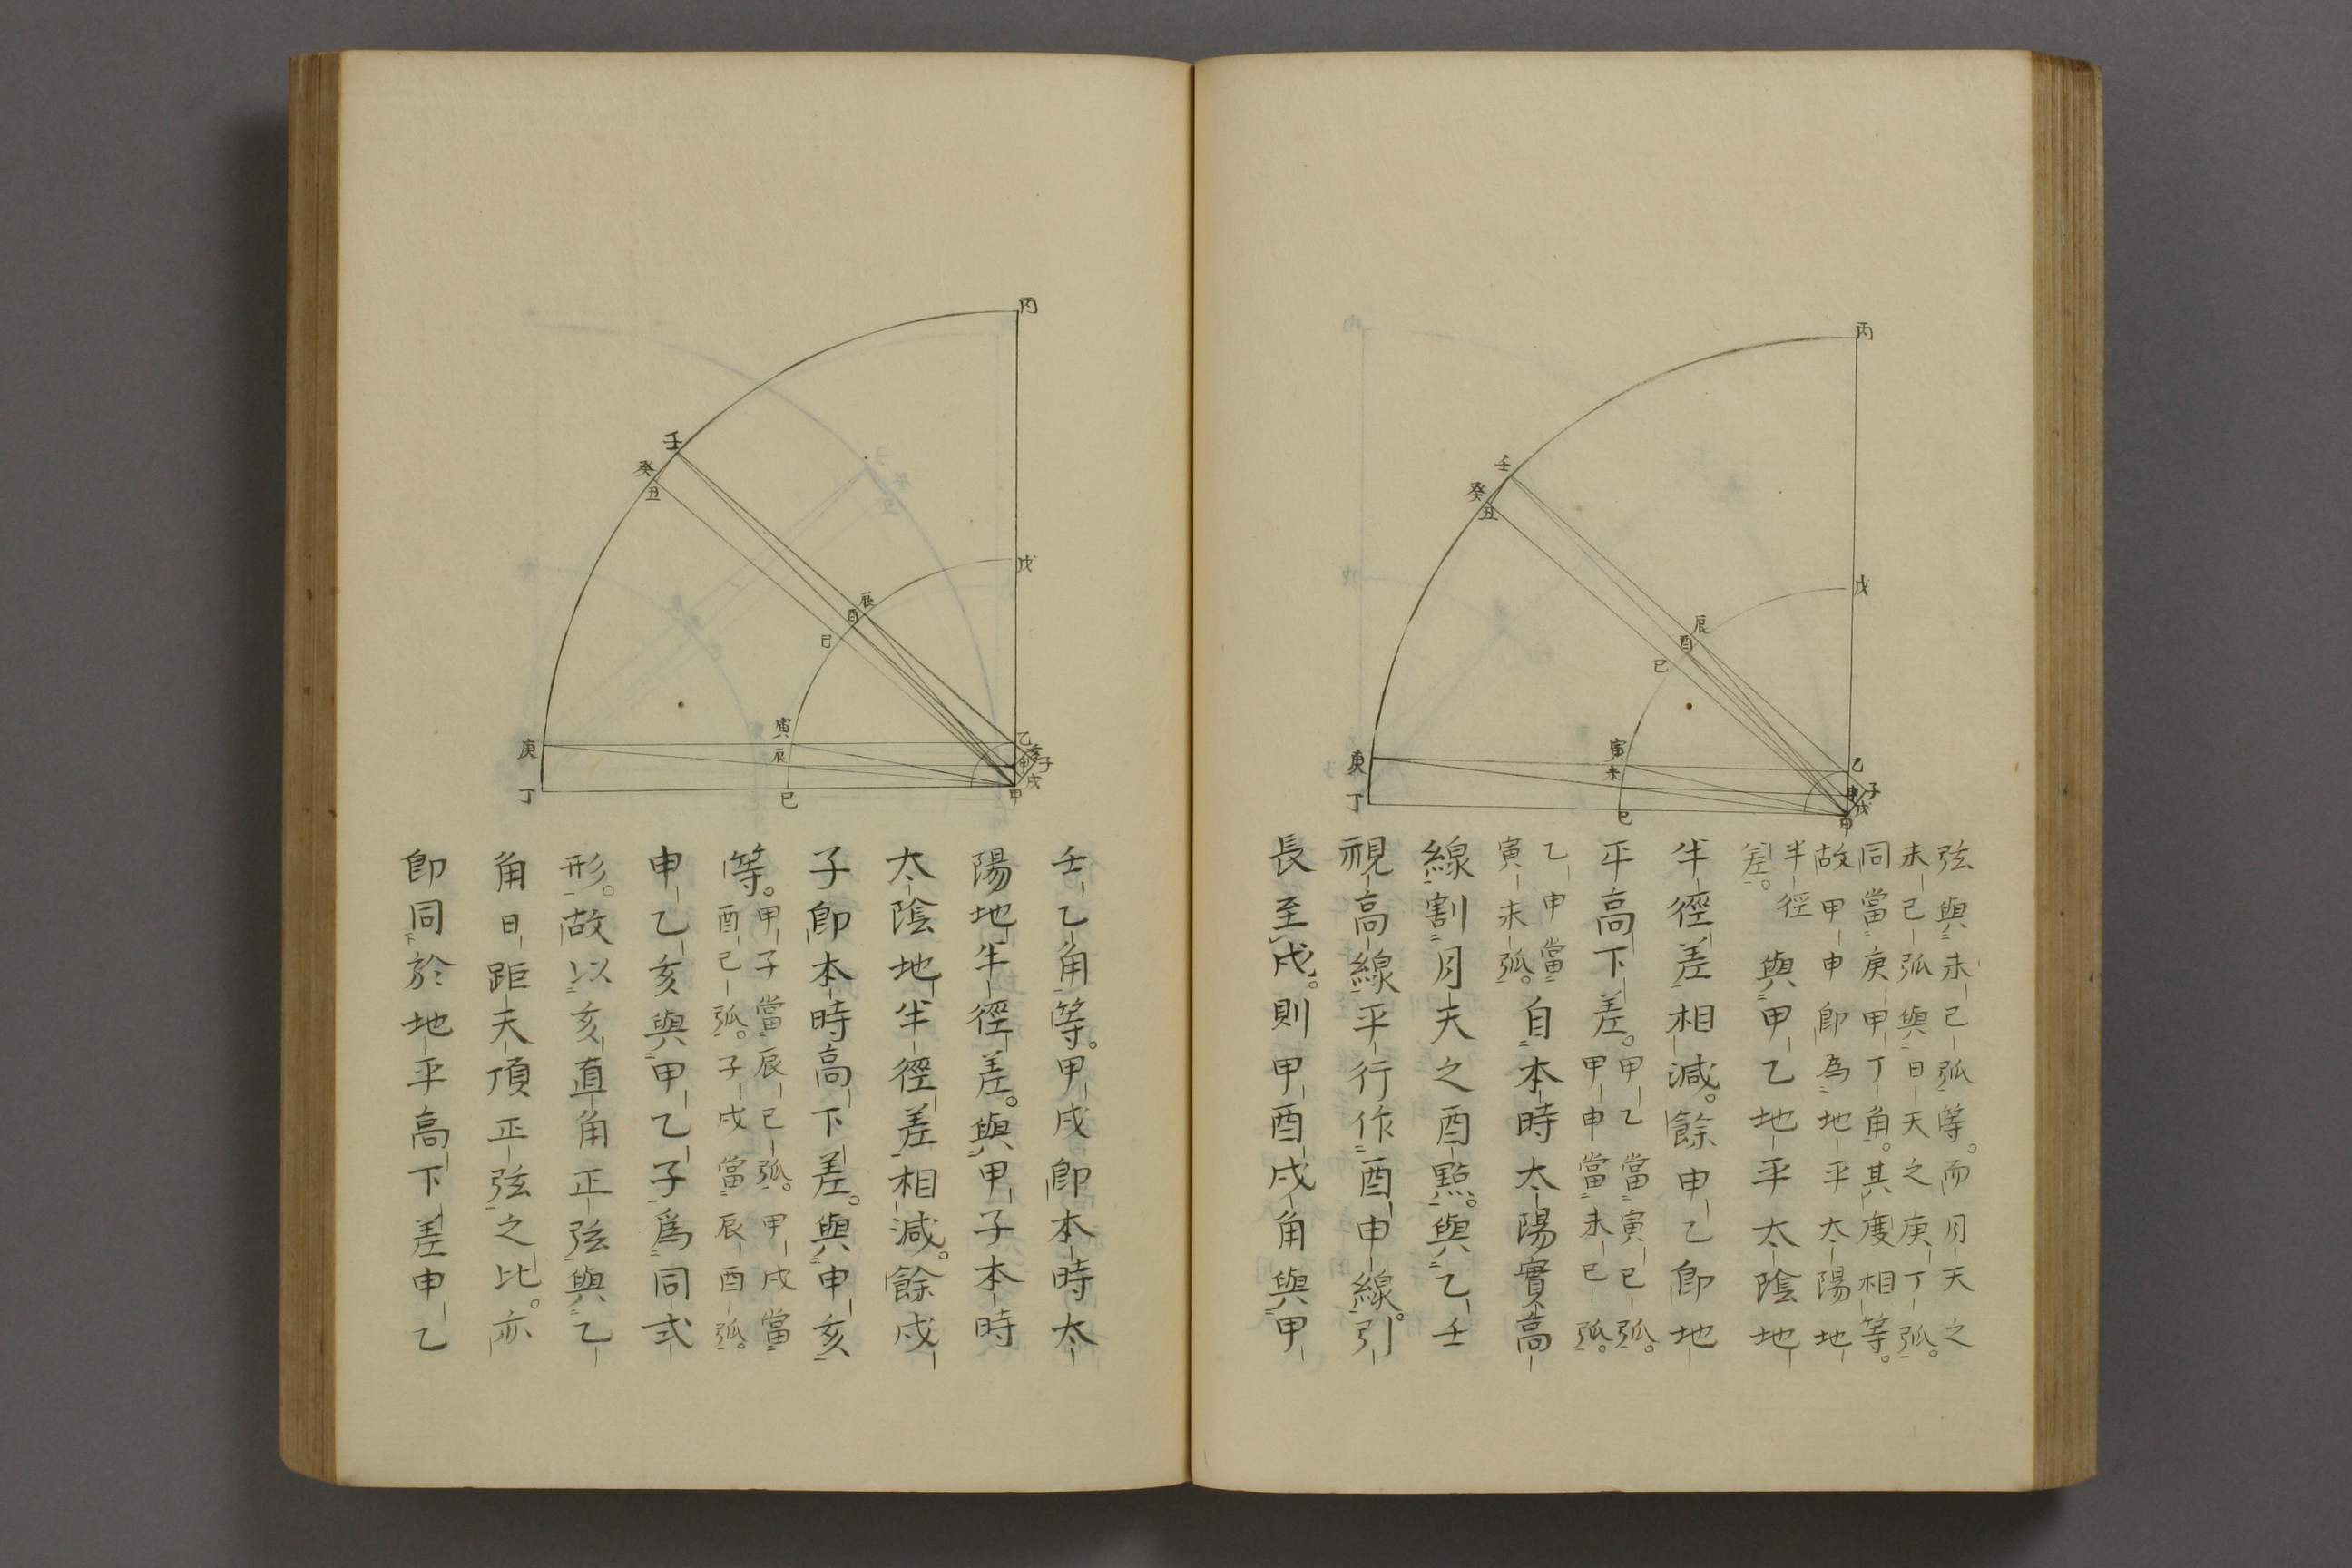 丙
壬
癸
丑
戊
辰
酉
巳
寅
未
庚
丁
巳
乙
子
申
戌
甲
弦與未巳弧等。而月天之
未巳弧與日天之庚丁弧。
同當庚甲丁角。其度相等。
故甲申即為地平太陽地
半徑
差。
與甲乙地平太陰地
半徑差相減。餘申乙即地
平高下差。
甲乙當寅巳弧。
甲申當未巳弧。
乙申當
寅未弧。
自本時太陽實高
線割月天之酉點。與乙壬
視高線平行作酉申線。引
長至戌。則甲酉戌角與甲
丙
壬
癸
丑
戊
辰
酉
巳
寅
辰
庚
丁
巳
乙
亥
子
申
戌
甲
壬乙角等。甲戌即本時太
陽地半徑差。與甲子本時
太陰地半徑差相減。餘戌
子即本時高下差。與申亥
等。
甲子當辰巳弧。甲戌當
酉巳弧。子戌當辰酉弧。
申乙亥與甲乙子爲同式
形。故以亥直角正弦與乙
角日距天頂正弦之比。亦
即同於地平高下差申乙